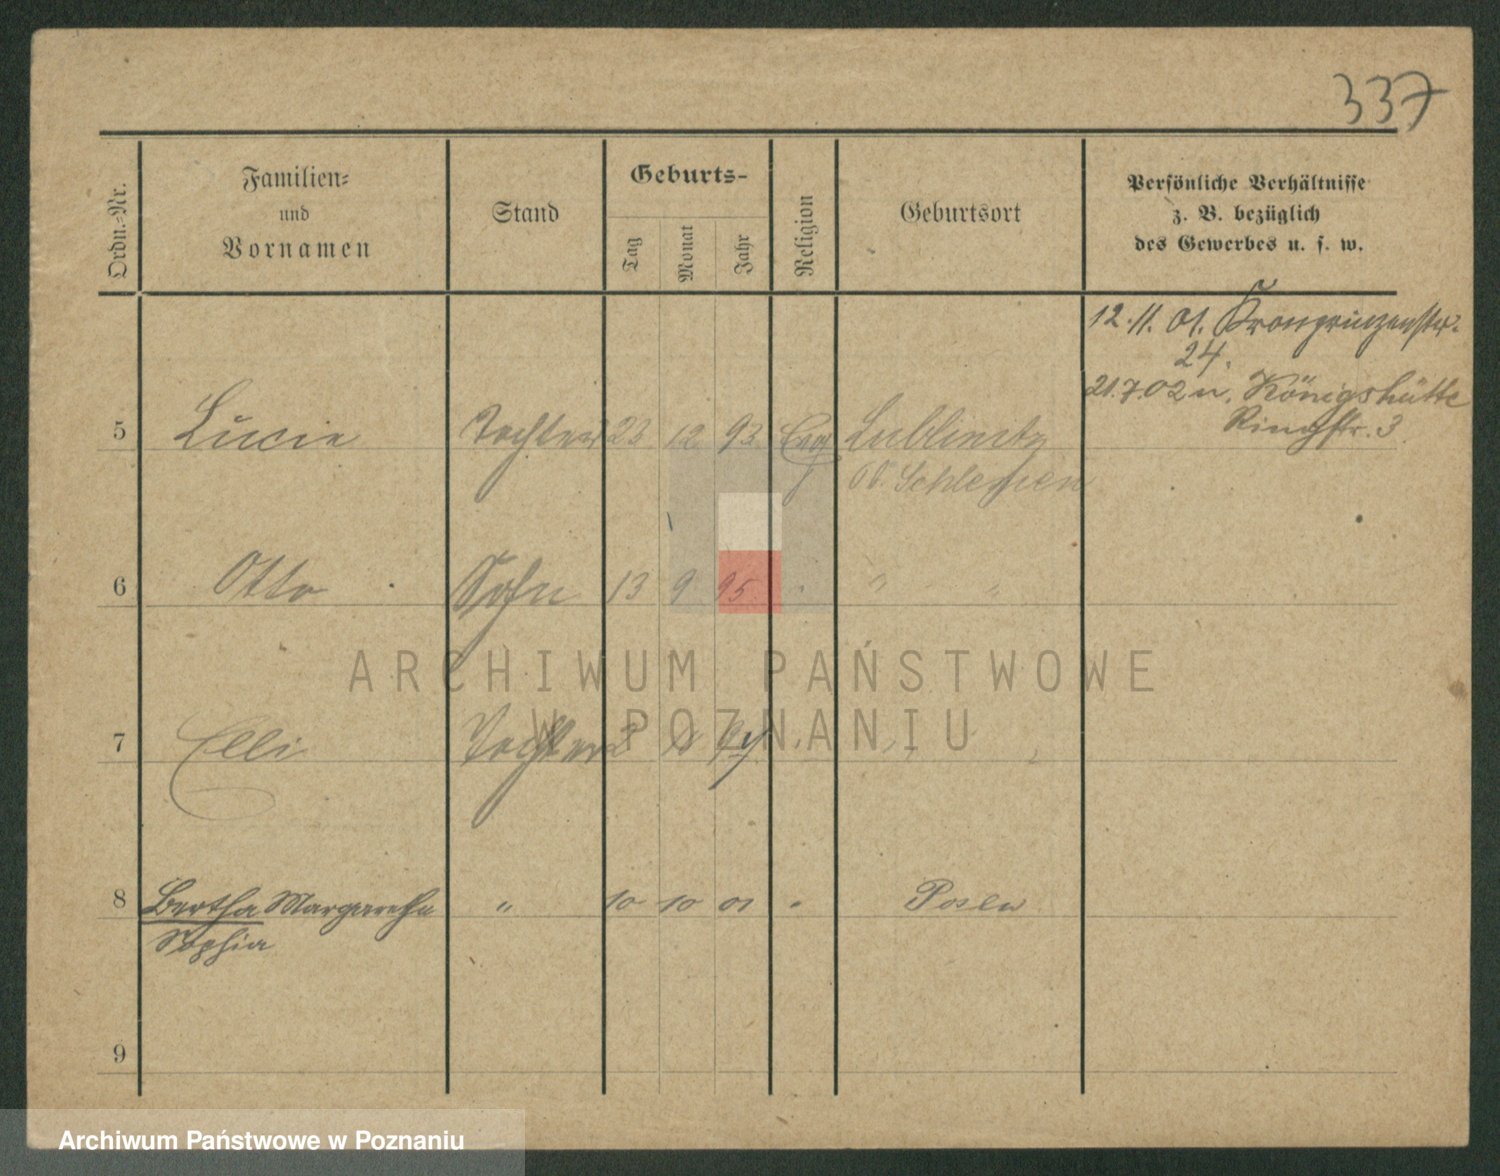 337
Ordn.-Nr.
Familien-
und
Vornamen
Stand
Geburts-
Tag
Monat
Jahr
Religion
Geburtsort
Persönliche Verhältnisse
z. B. bezüglich
des Gewerbes u. s. w.
12.11.01. Kronprinzenstr.
24.
21.7.02 n. Königshütte
Ringstr. 3
5 Lucie Tochter 23 12 93 Evg Lublinitz
Ob. Schlesien
6 Otto Sohn 13 9 95 " " "
ARCHIWUM PAŃSTWOWE
W POZNANIU
7 Elli Tochter
8 Bertha Margaretha " 10 10 01 " Posen
Sophia
9
Archiwum Państwowe w Poznaniu